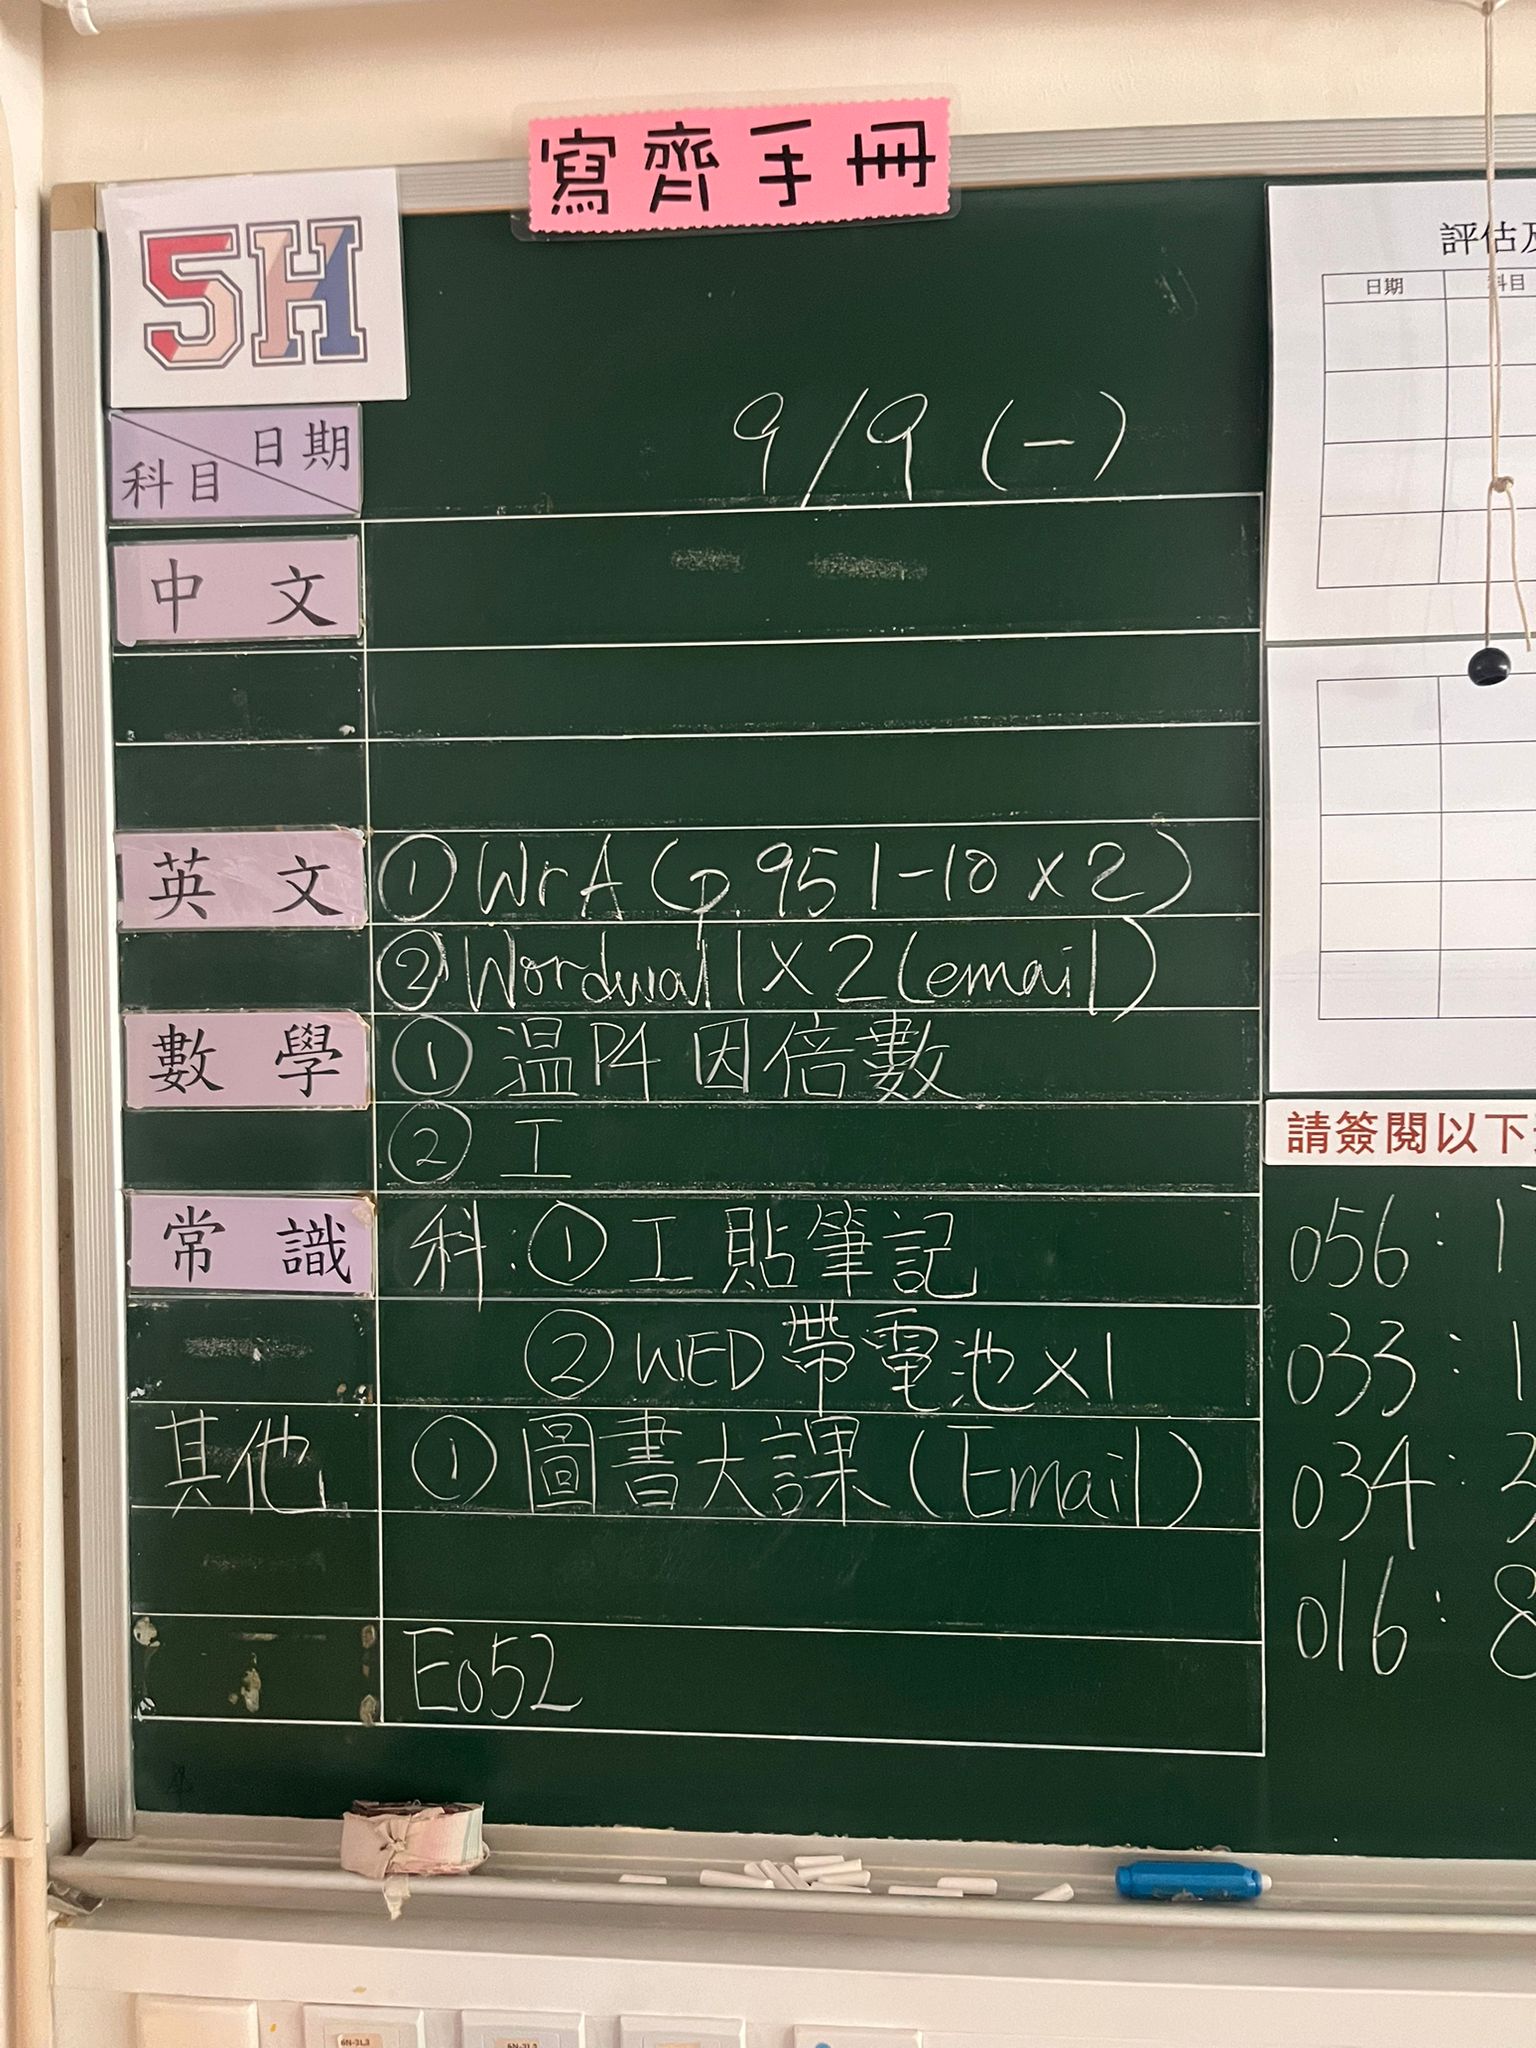 寫齊手冊
5H
日期
科目
9/9 (一)
中文
英文
① WrA (p.95 1-10 x 2)
② Wordwall x 2 (email)
數學
① 温P4 因倍數
② 工
常識
科: ① 工 貼筆記
② WED 帶電池 x 1
其他
① 圖書大課 (Email)
E052
評估及
日期
科目
請簽閱以下
056: 1
033: 1
034:
016: 8
6N-3L3